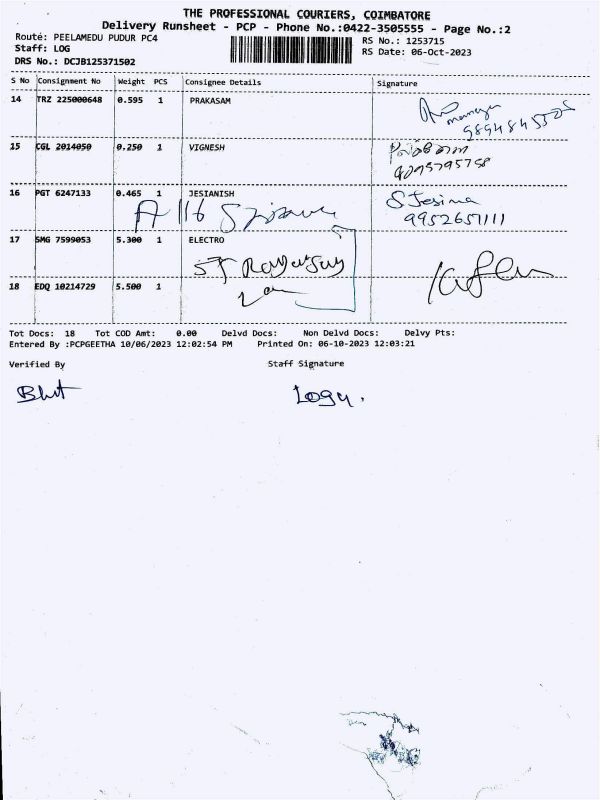 THE PROFESSIONAL COURIERS, COIMBATORE
Delivery Runsheet - PCP - Phone No.:0422-3505555 - Page No.:2
Route: PEELAMEDU PUDUR PC4
RS No.: 1253715
Staff: LOG
RS Date: 06-Oct-2023
DRS No.: DCJB125371502
S No Consignment No Weight PCS Consignee Details Signature
14 TRZ 225000648 0.595 1 PRAKASAM
manager
15 CGL 2014050 0.250 1 VIGNESH
16 PGT 6247133 0.465 1 JESIANISH S Jesima
A 116
9952651111
17 SMG 7599053 5.300 1 ELECTRO
18 EDQ 10214729 5.500 1
Tot Docs: 18 Tot COD Amt: 0.00 Delvd Docs: Non Delvd Docs: Delvy Pts:
Entered By :PCPGEETHA 10/06/2023 12:02:54 PM Printed On: 06-10-2023 12:03:21
Verified By Staff Signature
Logu.